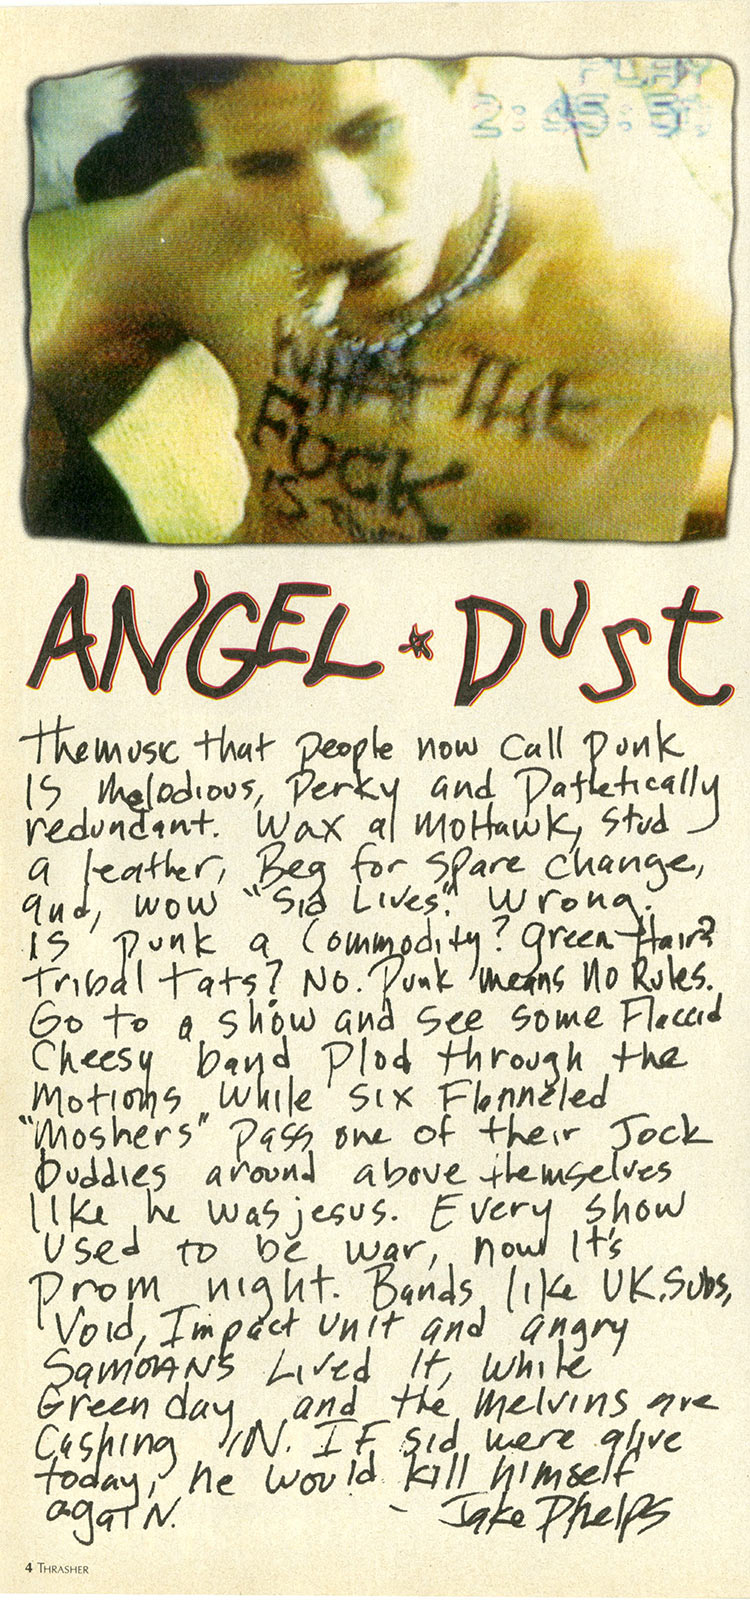 PLAY
2:45:5
WHAT THE
FUCK
IS
ANGEL * DUST
The music that people now call punk
is melodious, perky and pathetically
redundant. Wax a mohawk, stud
a leather, Beg for spare change,
and, wow "Sid Lives". Wrong.
is punk a Commodity? green Hair?
tribal tats? No. Punk means No Rules.
Go to a show and see some Flaccid
Cheesy band plod through the
Motions while six Flanneled
"Moshers" pass one of their Jock
buddies around above themselves
like he was jesus. Every show
used to be war, now It's
prom night. Bands like UK.Subs,
Void, Impact unit and angry
Samoans Lived It, while
Green day and the melvins are
Cashing iN. IF sid were alive
today, he would kill himself
again. - Jake Phelps
4 THRASHER